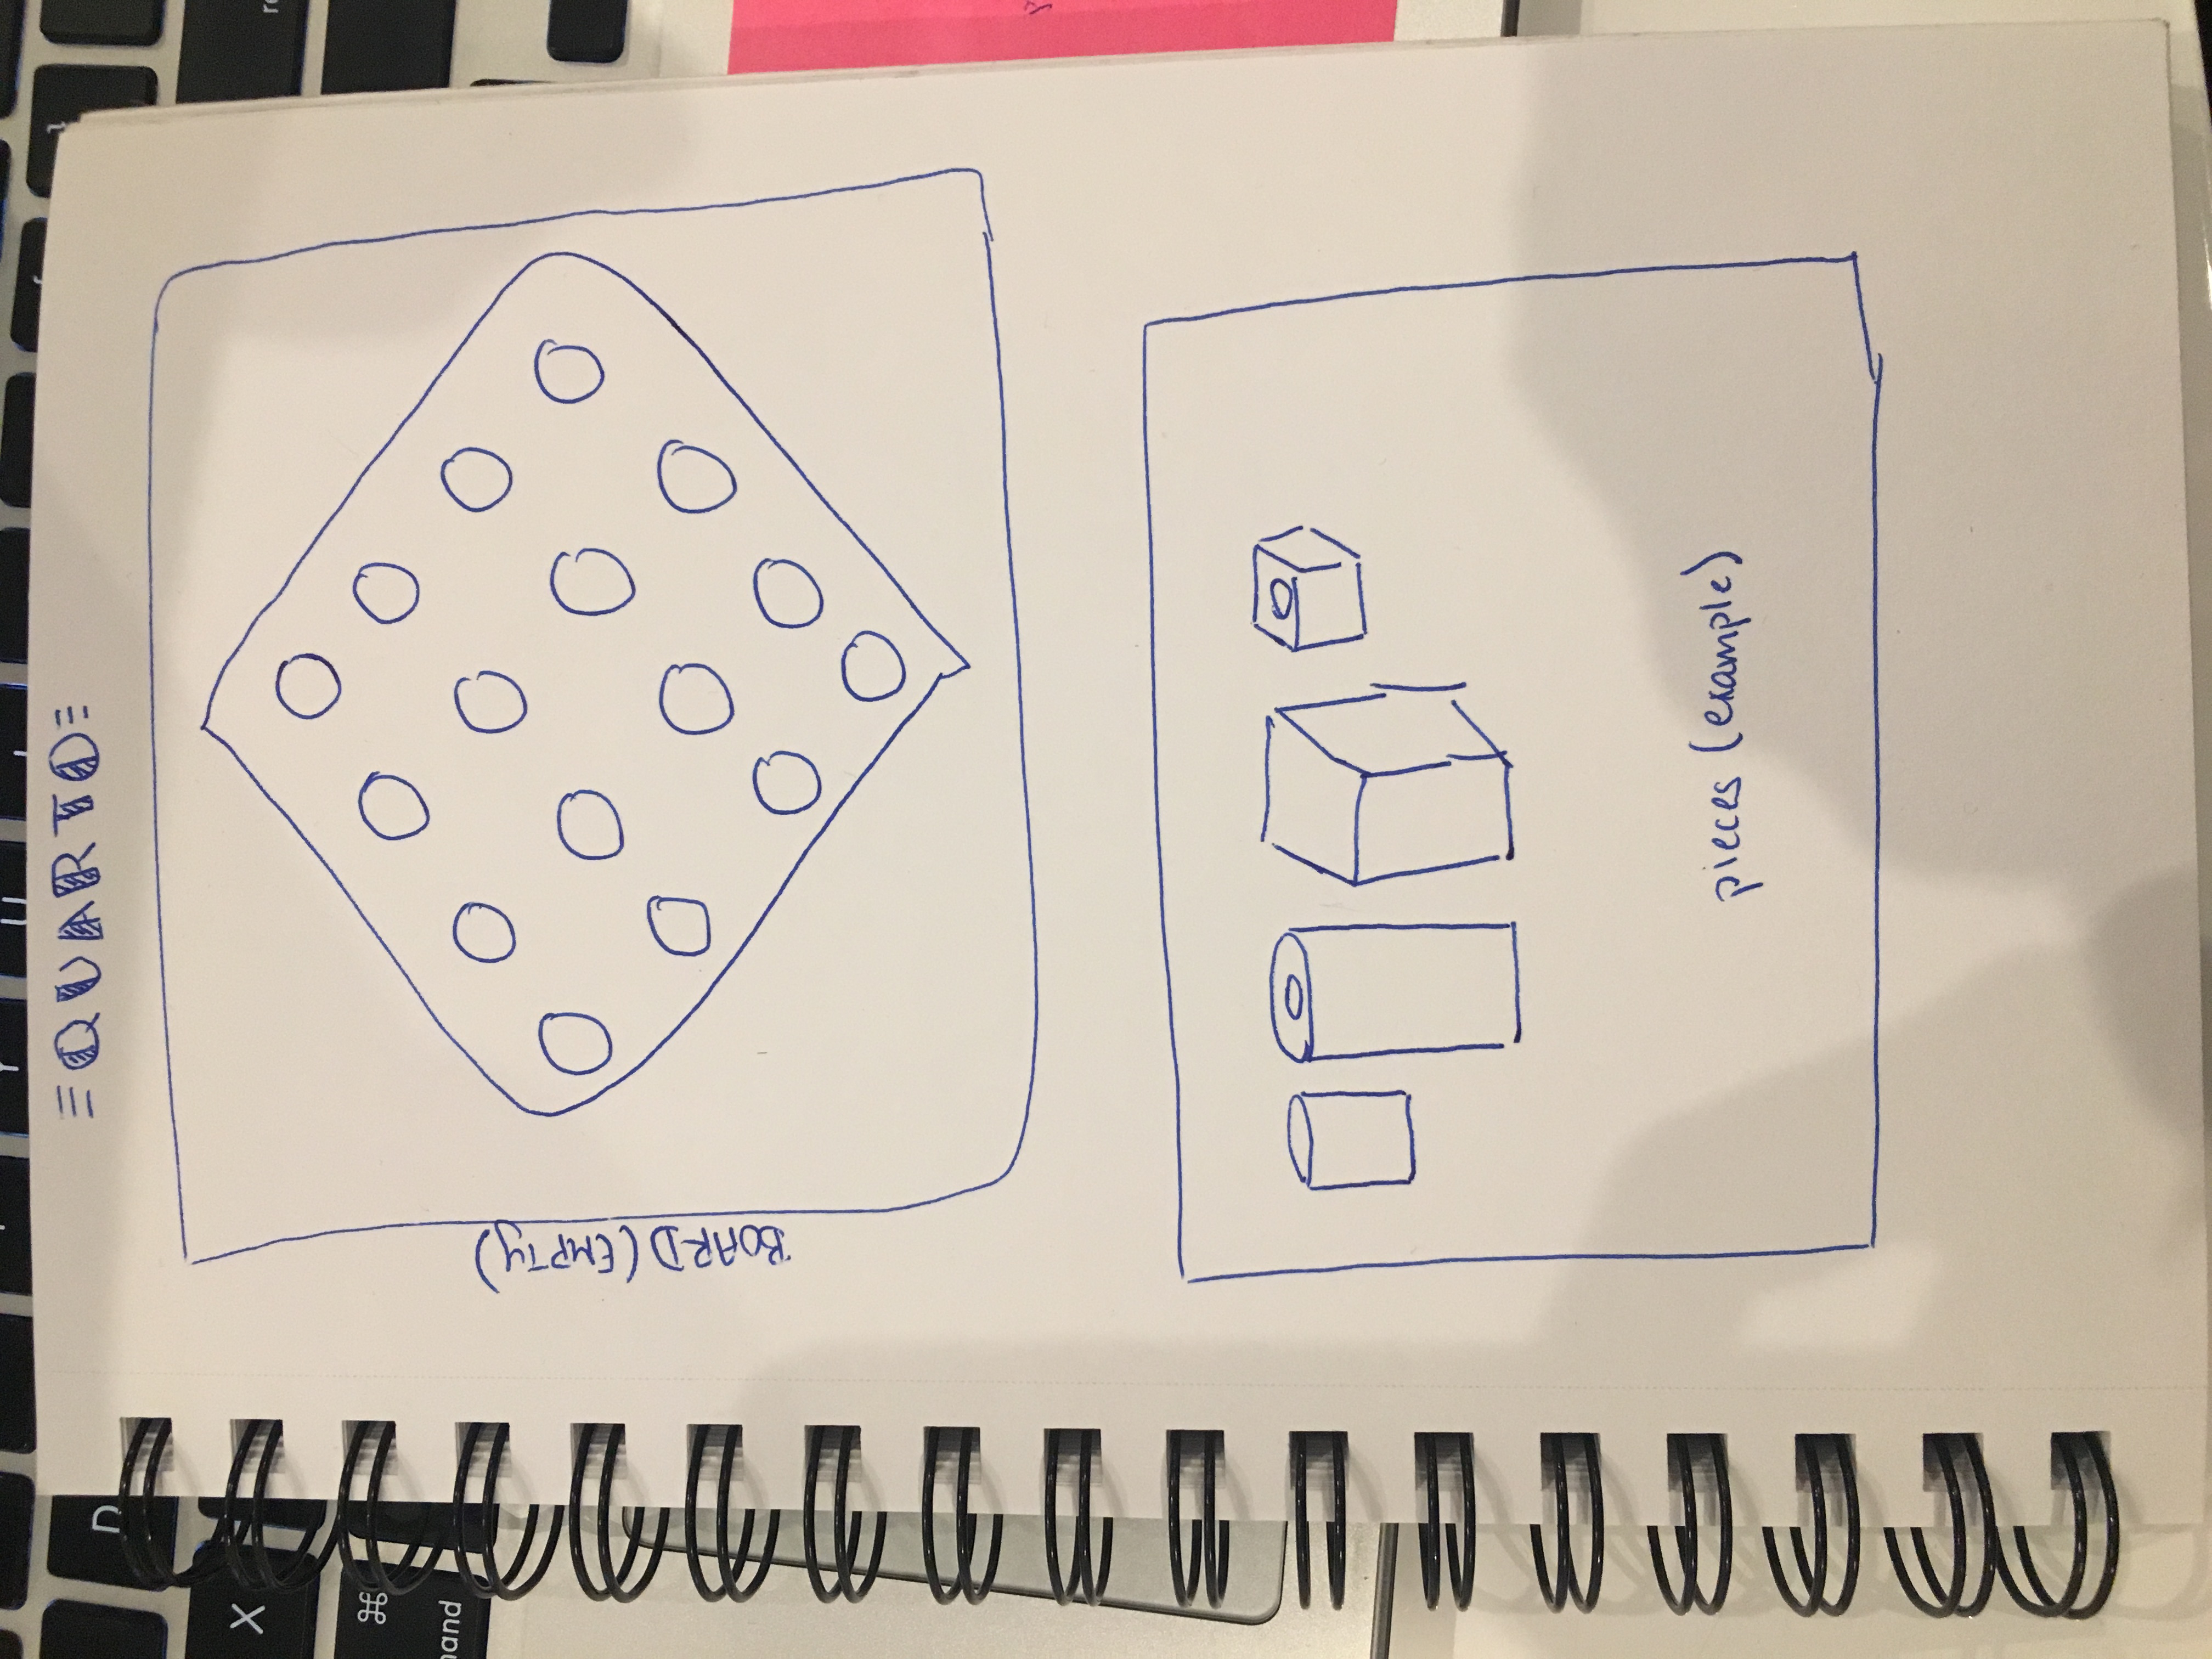 ≡QUARTO≡
BOARD (EMPTY)
pieces (example)
D
X
⌘
Y
U